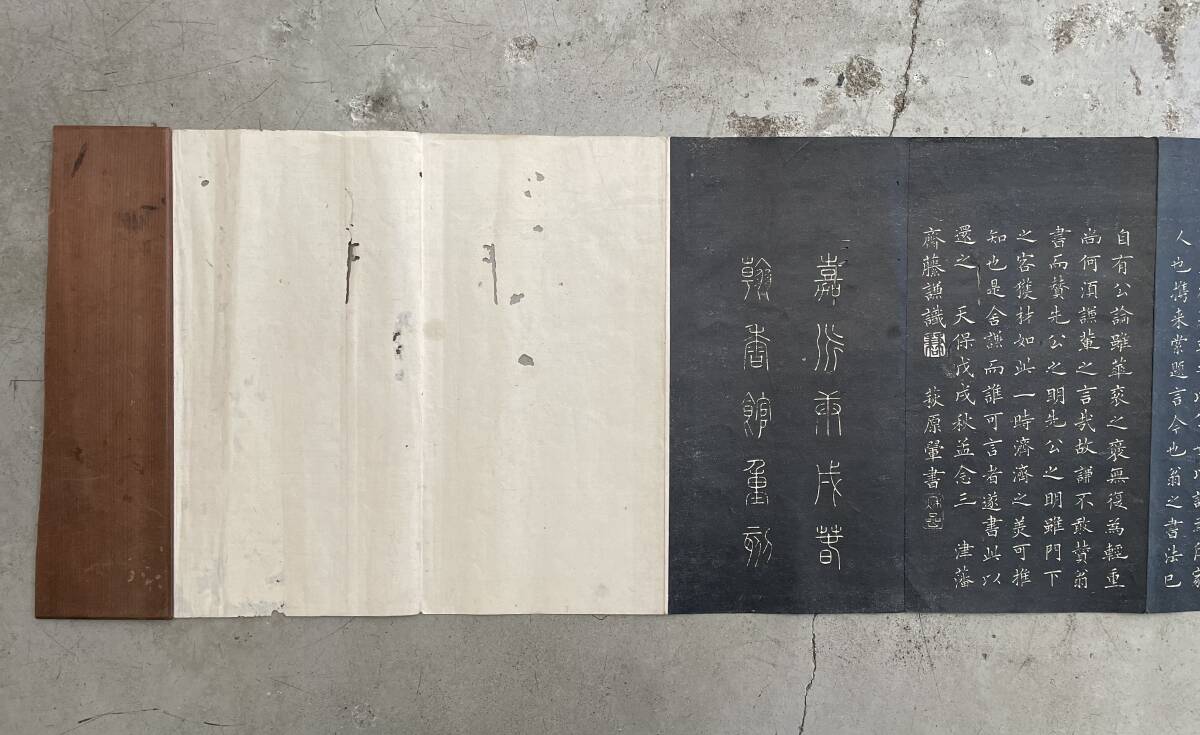 人也携来索題言今也翁之書法已
自有公論雖華袞之褒無復為輕重
尚何須謙輩之言哉故謙不敢賛翁
書而賛先公之明先公之明雖門下
之客獲材如此一時濟濟之美可推
知也是舍謙而誰可言者遂書此以
還之 天保戊戌秋孟念三 津藩
齊藤謙識 萩原翬書
嘉永庚戌春
翰香館重刻